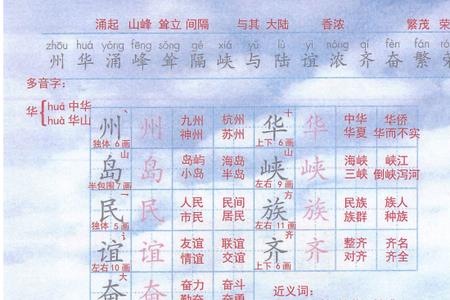 涌起 山峰 耸立 间隔 与其 大陆 香浓 繁茂 荣
zhōu huá yǒng fēng sǒng gé xiá yǔ lù yì nóng qí fèn fán ró
州 华 涌 峰 耸 隔 峡 与 陆 谊 浓 齐 奋 繁 荣
多音字:
华{huá 中华
huà 华山
州 州 九州 杭州 华 华 中华 华侨
神州 苏州 华夏 华而不实
独体 6画 上下 6画
岛 岛 岛屿 海岛 峡 峡 海峡 峡江
小岛 半岛 三峡 倒峡泻河
半包围 7画 左右 9画
民 民 人民 民间 族 族 民族 族人
市民 居民 族群 种族
独体 5画 左右 11画
谊 谊 友谊 联谊 齐 齐 整齐 齐名
情谊 交谊 对齐 齐全
左右 10画 上下 6画
奋 奋 奋力 奋斗 近义词:
勤奋 奋勇